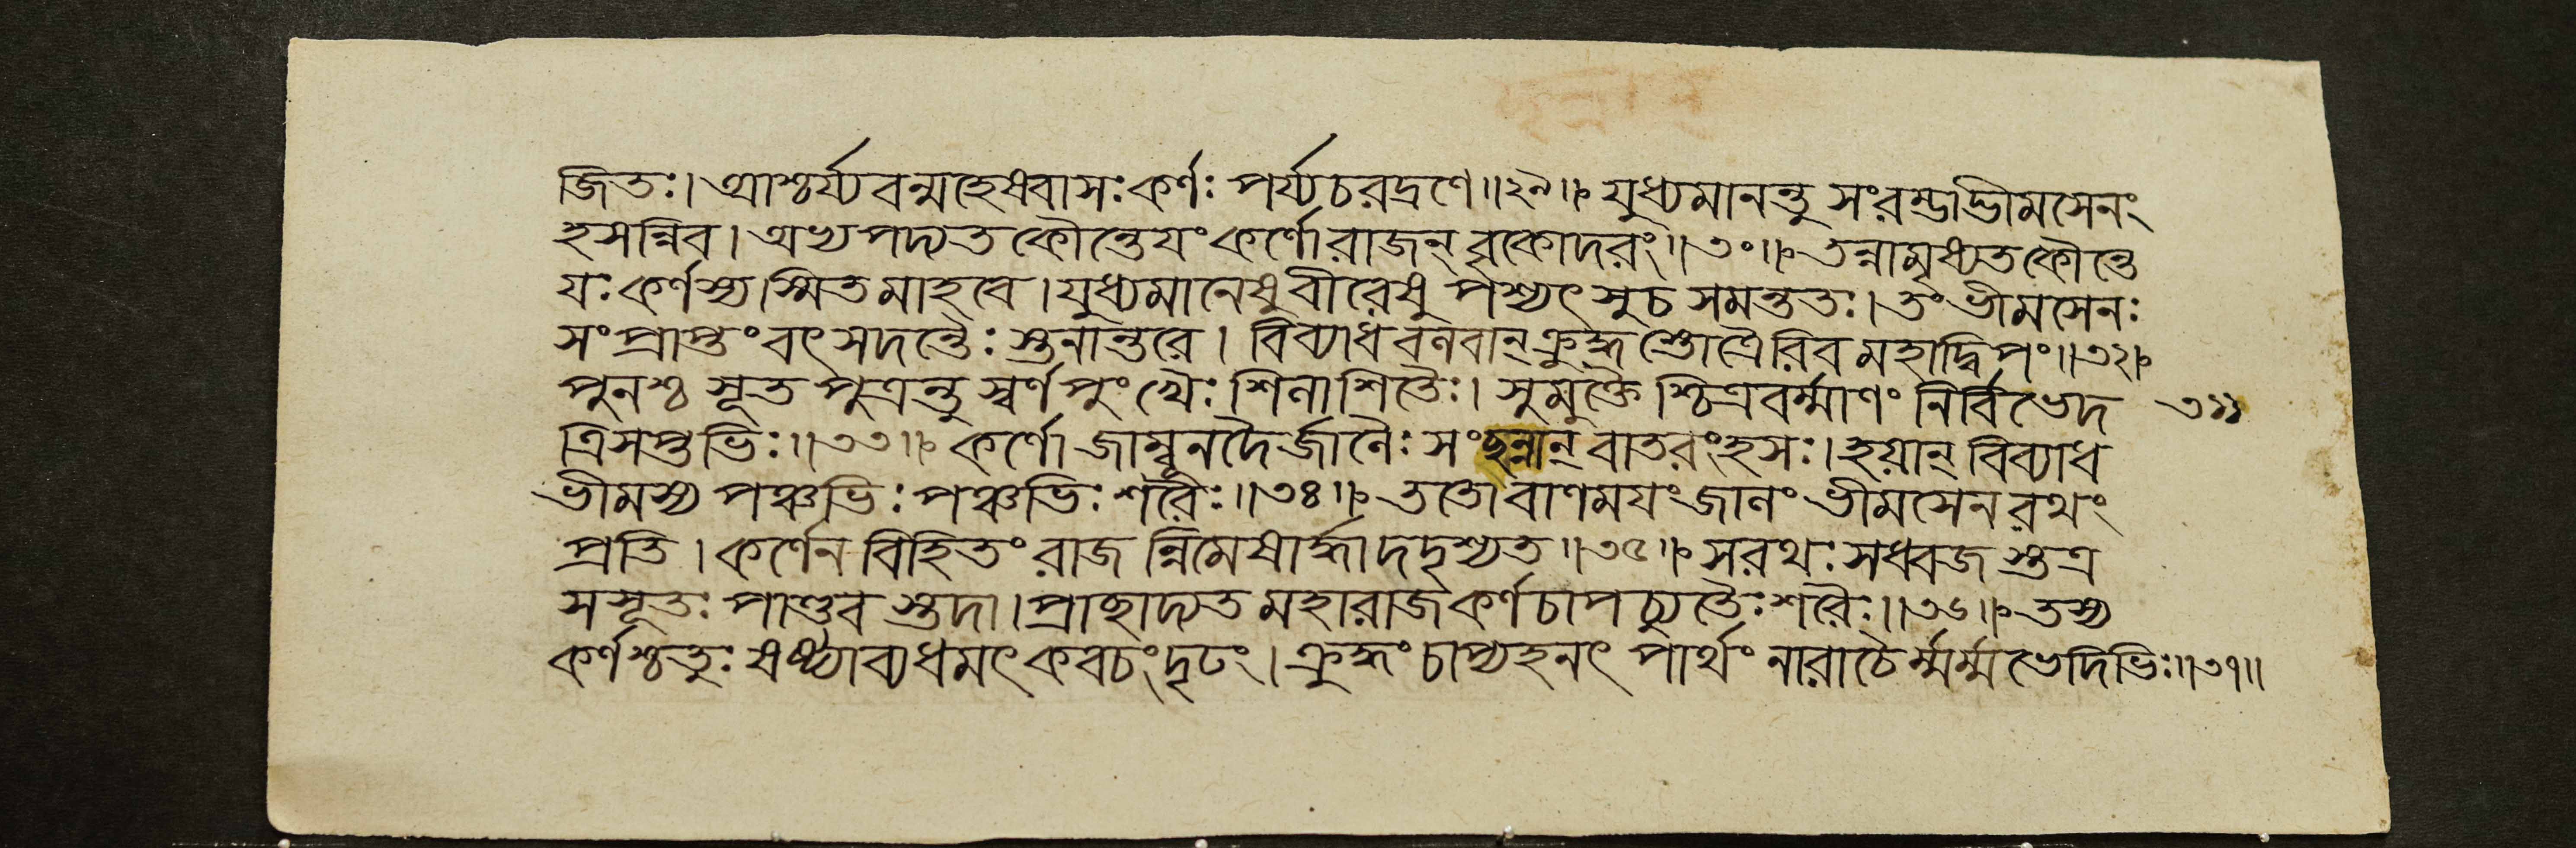 জিতঃ। আশ্চর্য্যবন্মহেষ্বাসঃ কর্ণঃ পর্য্যচরদ্রণে॥২৯॥ যুধ্যমানন্তু সংরম্ভাদ্ভীমসেনং
হসন্নিব। অভ্যপদ্যত কৌন্তেযং কর্ণো রাজন্ বৃকোদরং॥৩০॥ তন্নামৃষ্যত কৌন্তে
যঃ কর্ণস্য স্মিতমাহবে। যুধ্যমানেষু বীরেষু পশ্যৎসু চ সমন্ততঃ। তং ভীমসেনঃ
সংপ্রাপ্তং বৎসদন্তৈঃ স্তনান্তরে। বিব্যাধ বলবান্ ক্রুদ্ধস্তোত্রৈরিব মহাদ্বিপং॥৩২॥
পুনশ্চ সূতপুত্রন্তু স্বর্ণপুংখৈঃ শিলাশিতৈঃ। সুমুক্তৈশ্চিত্রবর্ম্মাণং নির্বিভেদ ৩১১
ত্রিসপ্তভিঃ॥৩৩॥ কর্ণো জাম্বূনদৈর্জালৈঃ সংছন্নান্ বাতরংহসঃ। হয়ান্ বিব্যাধ
ভীমস্য পঞ্চভিঃ পঞ্চভিঃ শরৈঃ॥৩৪॥ ততো বাণমযং জালং ভীমসেনরথং
প্রতি। কর্ণেন বিহিতং রাজন্নিমেষার্দ্ধাদদৃশ্যত॥৩৫॥ সরথঃ সধ্বজস্তত্র
সসূতঃ পাণ্ডবস্তদা। প্রাছাদ্যত মহারাজ কর্ণচাপচ্যুতৈঃ শরৈঃ॥৩৬॥ তস্য
কর্ণশ্চতুঃষষ্ঠ্যা ব্যধমৎ কবচং দৃঢং। ক্রুদ্ধং চাপ্যহনৎ পার্থং নারাচৈর্ম্মর্ম্মভেদিভিঃ॥৩৭॥